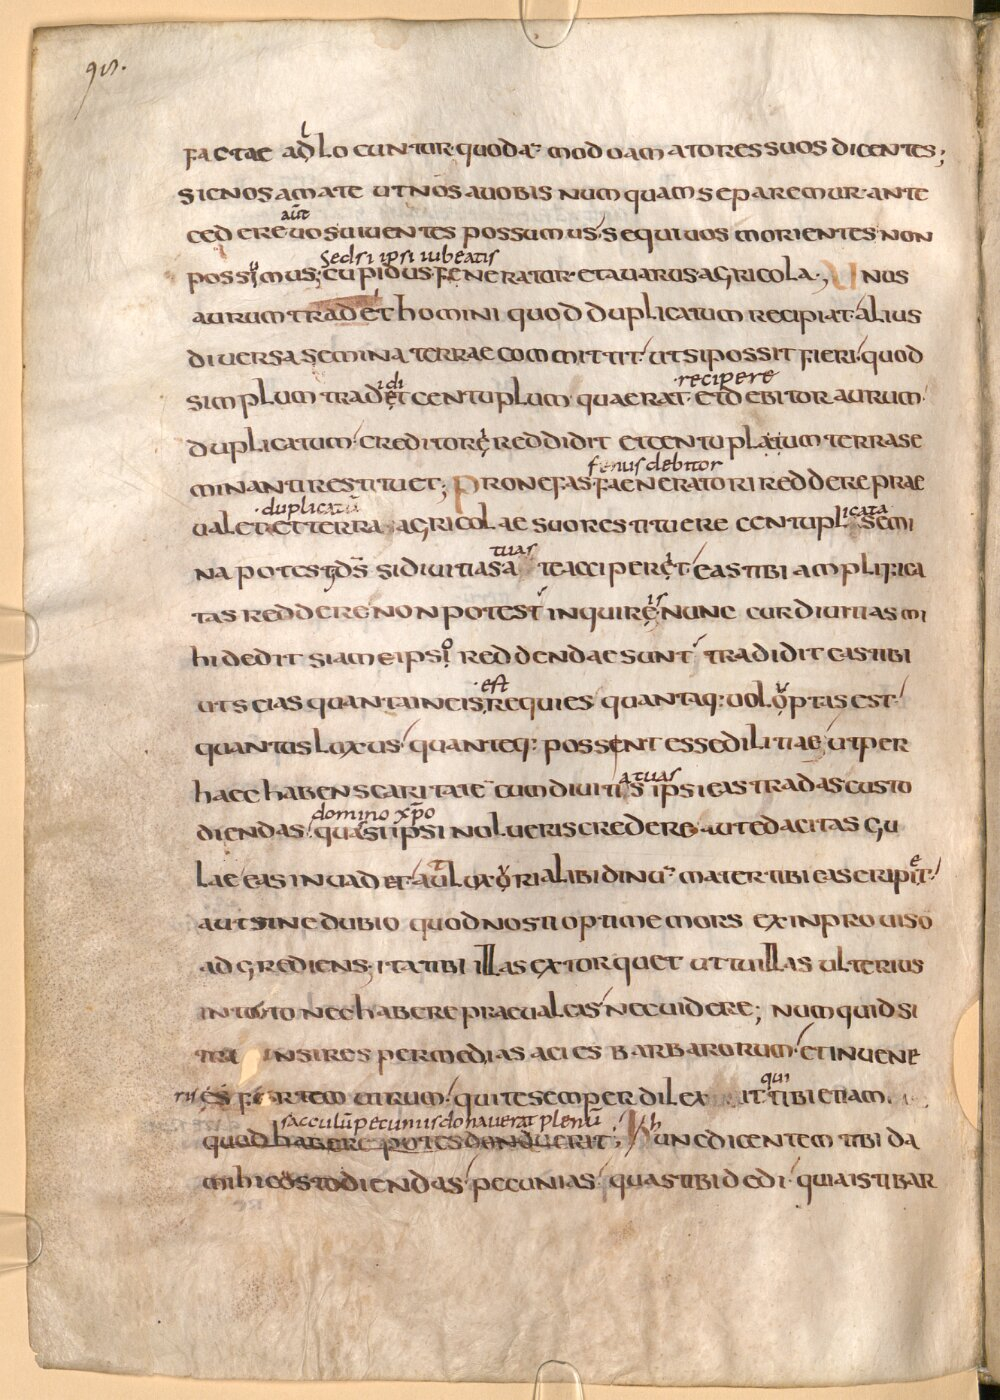 95.
factae adlocuntur quodā modo amatores suos dicentes;
si enos amate ut nos a uobis numquam separemur ante
aūte
cedere uos uiuentes possumus sequi uos morientes non
sed si ipsi iubeatis
possimus; cupidus fenerator et auarus agricola. Unus
aurum tradet homini quod duplicatum recipiat alius
diuersa semina terrae committit ut si possit fieri quod
idi recipere
simplum tradet centuplum quaerat et debitor aurum
duplicatum creditore reddidit et centuplatum terra se
fenus debitor
minanti restituet; Pro nefas faeneratori reddere prae
duplicatū icata
ualet et terra agricolae suo restituere centupl semi
tuas
na potest ds̄ si diuitias a te acceperet eas tibi amplifica
is
tas reddere non potest inquire nunc cur diuitias mi
hi dedit si a me ipsi reddendae sunt tradidit eas tibi
est
ut scias quanta in eis requies quantaq: uoluptas est
quantus luxus quanteq: possent esse dilitiae ut per
a tuas
haec habens caritatē cum diuitiis ipsi eas tradas custo
domino xp̄o
diendas quas ipsi nolueris credere aut edacitas gu
lae eas inuadet aut luxorialibidinū mater tibi eas eripit
aut sine dubio quod nosti optime mors ex inprouiso
adgrediens ita tibi illas extorquet ut tu illas ulterius
in toto nec habere praeualeas nec uidere; numquid si
insires per medias acies barbarorum et inuene
qui
ris uirum qui te semper dilex it tibi etiam
sacculū pecuniis donauerat plenū
quod habere potes donauerit; hunc dicentem tibi da
mihi custodiendas pecunias quas tibi dedi quia isti bar